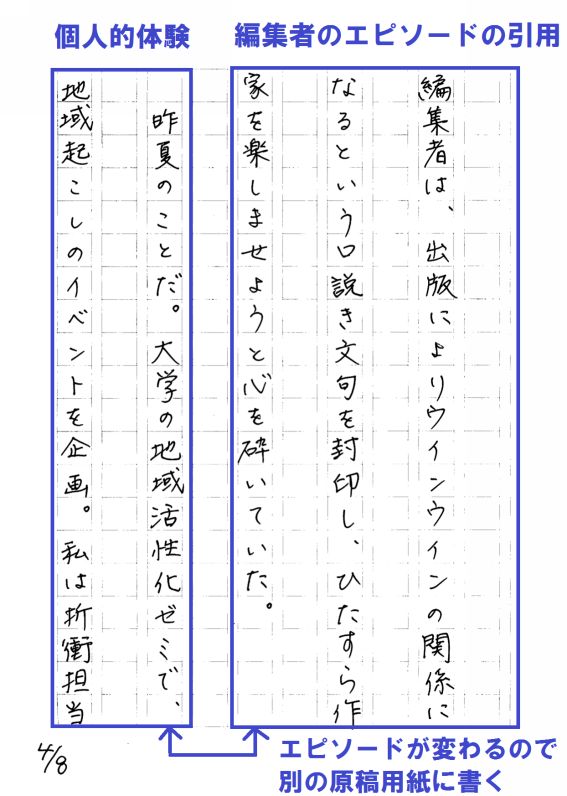 個人的体験
編集者のエピソードの引用
編集者は、出版によりウインウインの関係に
なるという口説き文句を封印し、ひたすら作
家を楽しませようと心を砕いていた。
昨夏のことだ。大学の地域活性化ゼミで、
地域起こしのイベントを企画。私は折衝担当
エピソードが変わるので
別の原稿用紙に書く
4/8